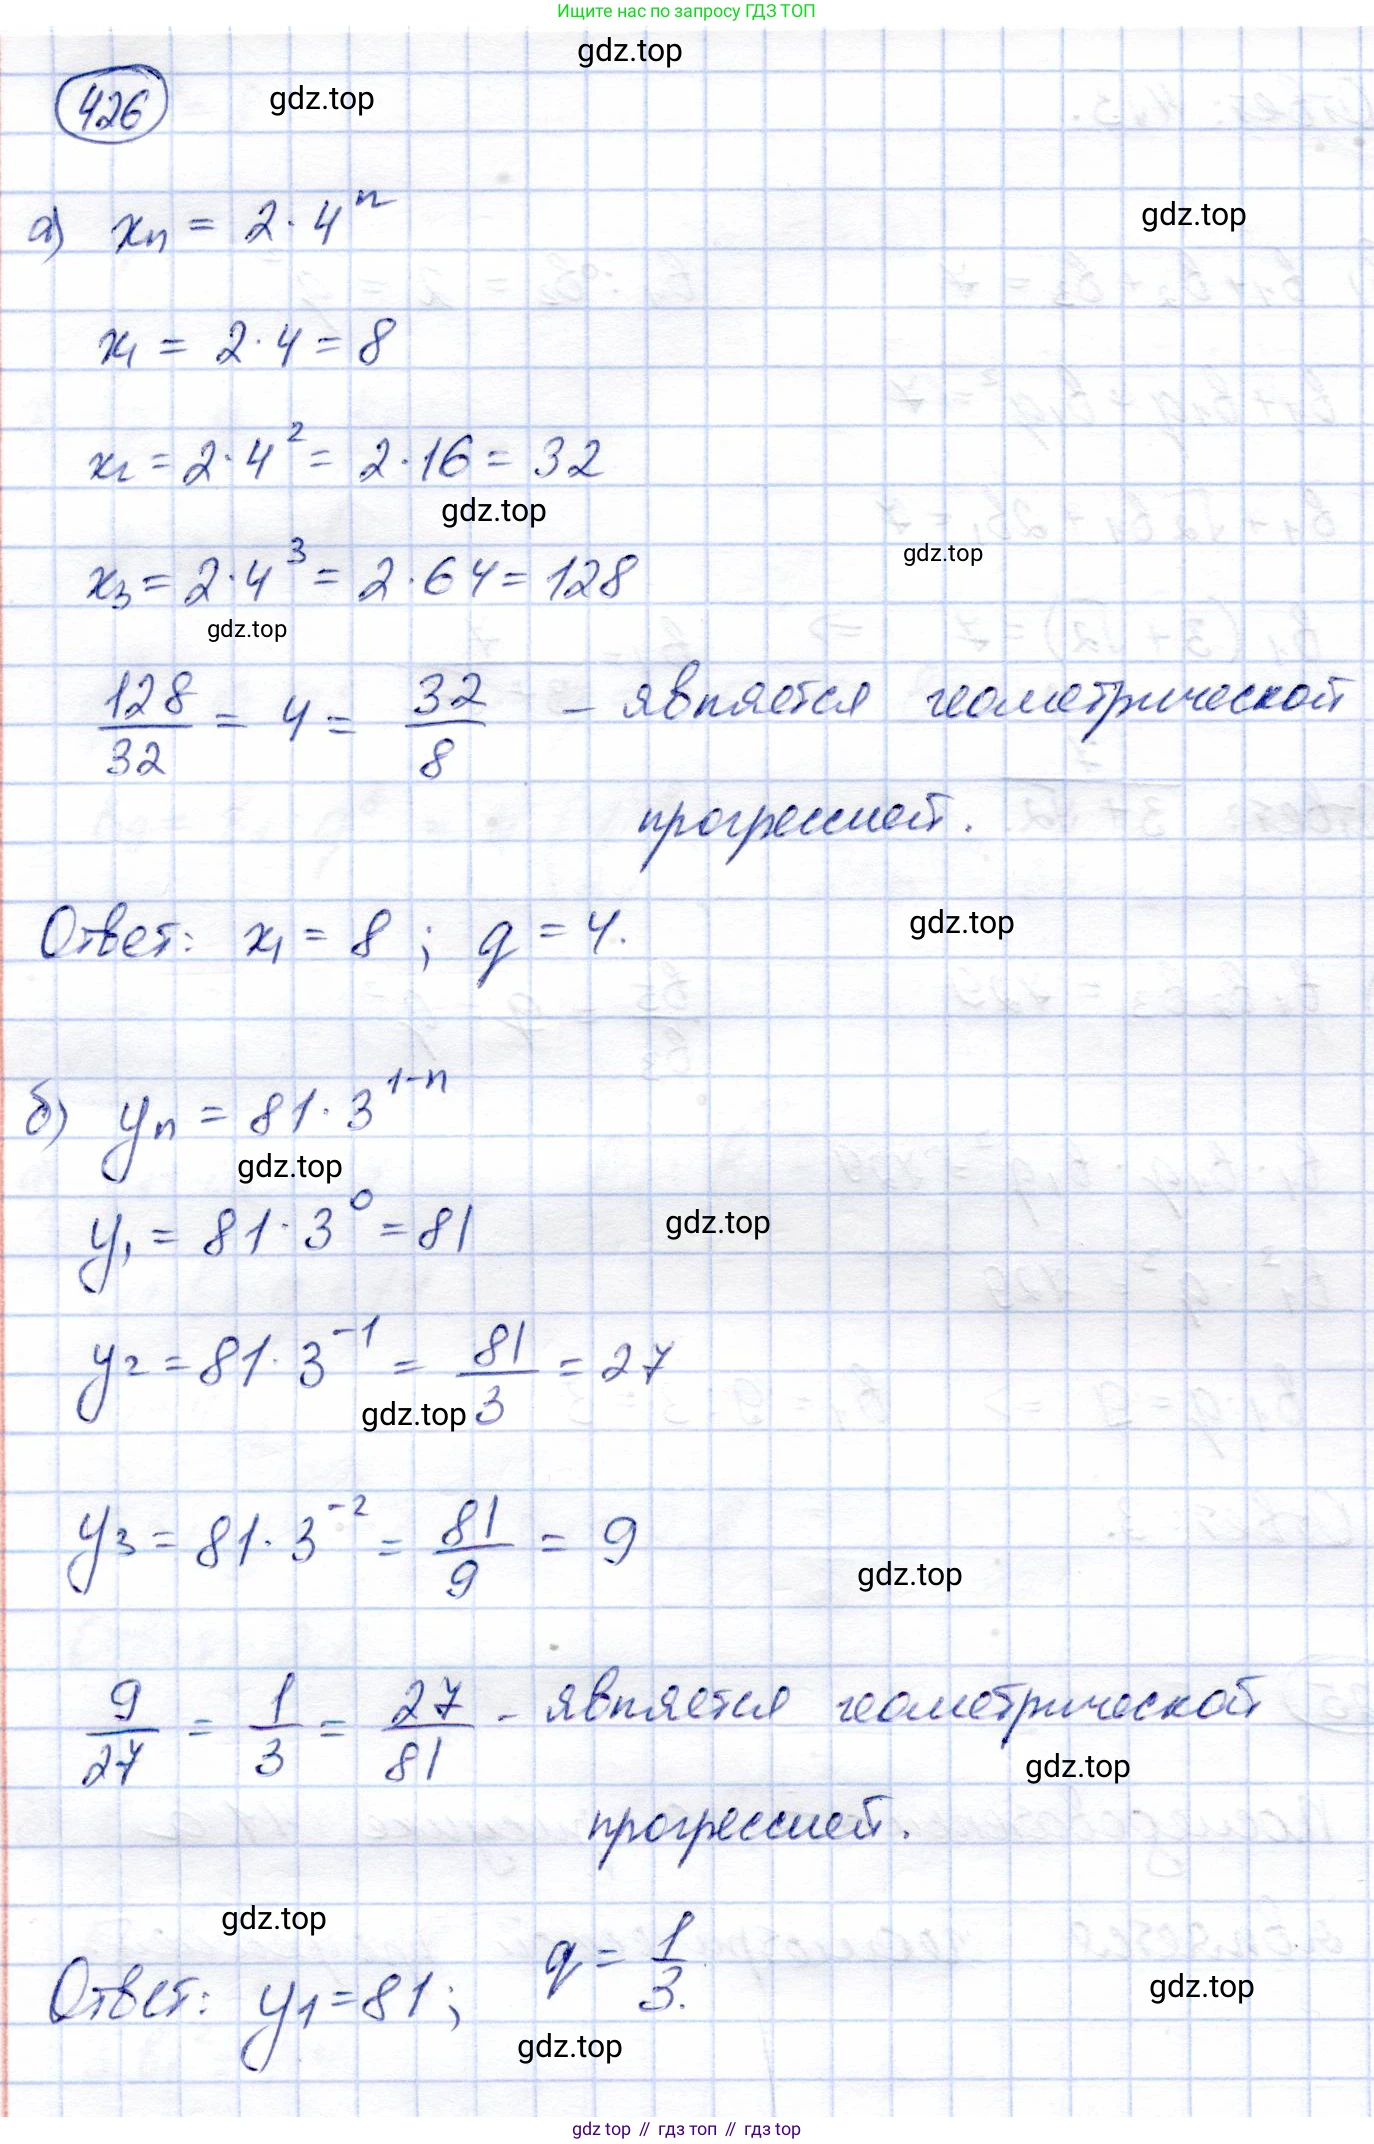 Ищите нас по запросу ГДЗ ТОП
gdz.top
426
gdz.top
а) xₙ = 2 · 4ⁿ
gdz.top
x₁ = 2 · 4 = 8
x₂ = 2 · 4² = 2 · 16 = 32
gdz.top
gdz.top
x₃ = 2 · 4³ = 2 · 64 = 128
gdz.top
128/32 = 4 = 32/8 – является геометрической
прогрессией.
Ответ: x₁ = 8 ; q = 4.
gdz.top
б) yₙ = 81 · 3¹⁻ⁿ
gdz.top
y₁ = 81 · 3⁰ = 81
gdz.top
y₂ = 81 · 3⁻¹ = 81/3 = 27
gdz.top
y₃ = 81 · 3⁻² = 81/9 = 9
gdz.top
9/27 = 1/3 = 27/81 – является геометрической
gdz.top
прогрессией.
gdz.top
Ответ: y₁ = 81 ; q = 1/3.
gdz.top
gdz.top
gdz top // гдз топ // гдз top